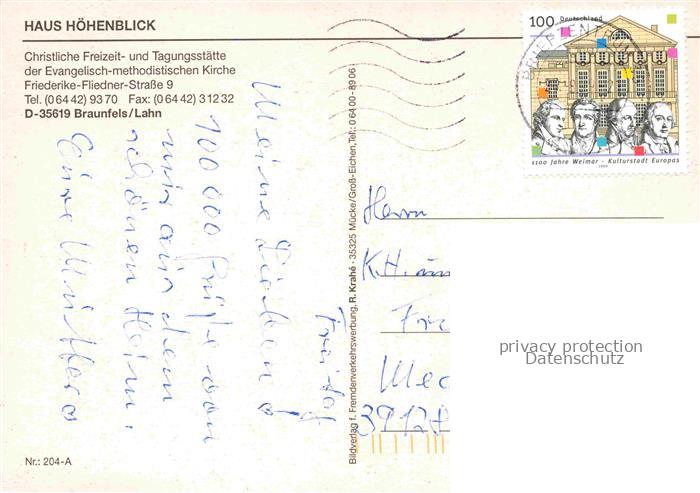 HAUS HÖHENBLICK
Christliche Freizeit- und Tagungsstätte
der Evangelisch-methodistischen Kirche
Friederike-Fliedner-Straße 9
Tel. (0 64 42) 93 70 Fax: (0 64 42) 3 12 32
D-35619 Braunfels/Lahn
Freitag
Meine Lieben!
100 000 Grüße von
mir aus dem
schönen Heim.
Eure Mutter
Nr.: 204-A
Bildverlag f. Fremdenverkehrswerbung, R. Krahé · 35325 Mücke/Groß-Eichen, Tel.: 0 64 00 - 89 06
100 Deutschland
1100 Jahre Weimar - Kulturstadt Europas
1999
BRIEFZENTRUM
Herrn
K.H. un
39128
privacy protection
Datenschutz